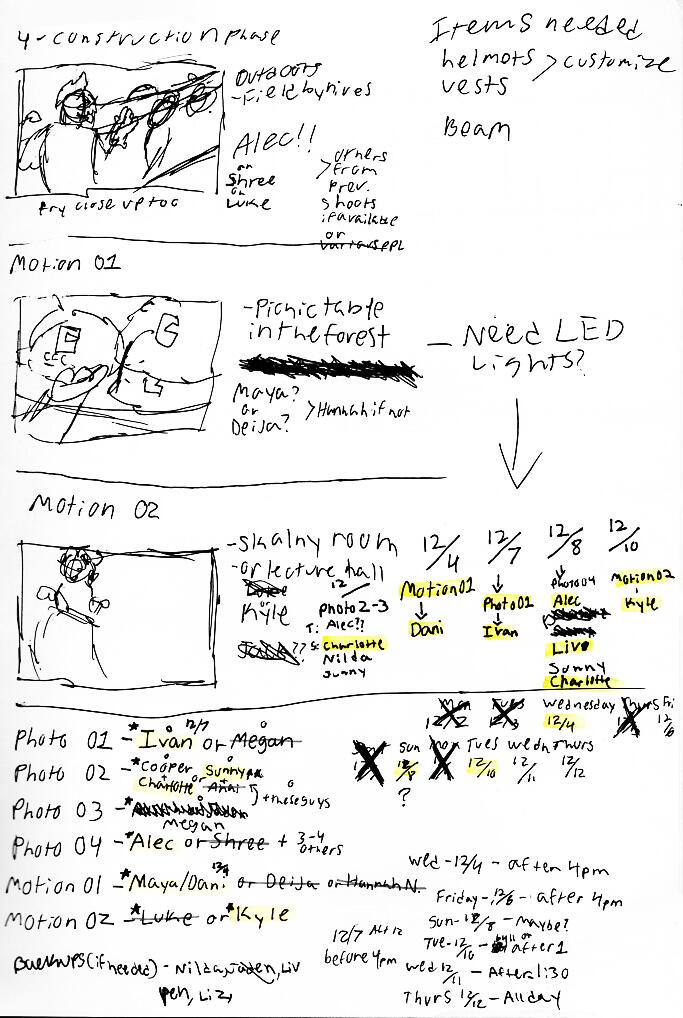 4-construction phase
Outdoors
-Field by hives
Alec!!
or
Shree
or
Luke
>others
from
prev.
shoots
if available
or
various ppl
try close up too
Items needed
helmots > customize
vests
Beam
Motion 01
-Picnic table
in the forest
Maya?
or
Deija?
>Hannah if not
- Need LED
Lights?
Motion 02
-skalny room
-or lecture hall
Luke
or
Kyle
12/
Photo 2-3
T: Alec??
??S: Charlotte
Nilda
Sunny
12/4
Motion 01
Dani
12/7
Photo 01
Ivan
12/8
Photo 04
Alec
Liv
Sunny
Charlotte
12/10
Motion 02
Kyle
Mon
12/2
Tues
12/3
Wednesday
12/4
Thurs
Fri
12/6
Sun
12/8
?
Mon
Tues
12/10
Wedn
12/11
Thurs
12/12
Photo 01 - *Ivan 12/7 or Megan
Photo 02 - *Cooper or Sunny
Charlotte
+these guys
Photo 03 - *
Megan
Photo 04 - *Alec or Shree + 3-4
others
Motion 01 - *Maya/Dani 12/4 or Deija or Hannah N.
Motion 02 - *Luke or *Kyle
Backups (if needed) - Nilda, Jaden, Liv
Liz
12/7
before 4pm
Wed - 12/4 - after 4pm
Friday - 12/6 - after 4pm
Sun - 12/8 - Maybe?
Tue - 12/10 - after 1
Wed 12/11 - After 1:30
Thurs 12/12 - All day